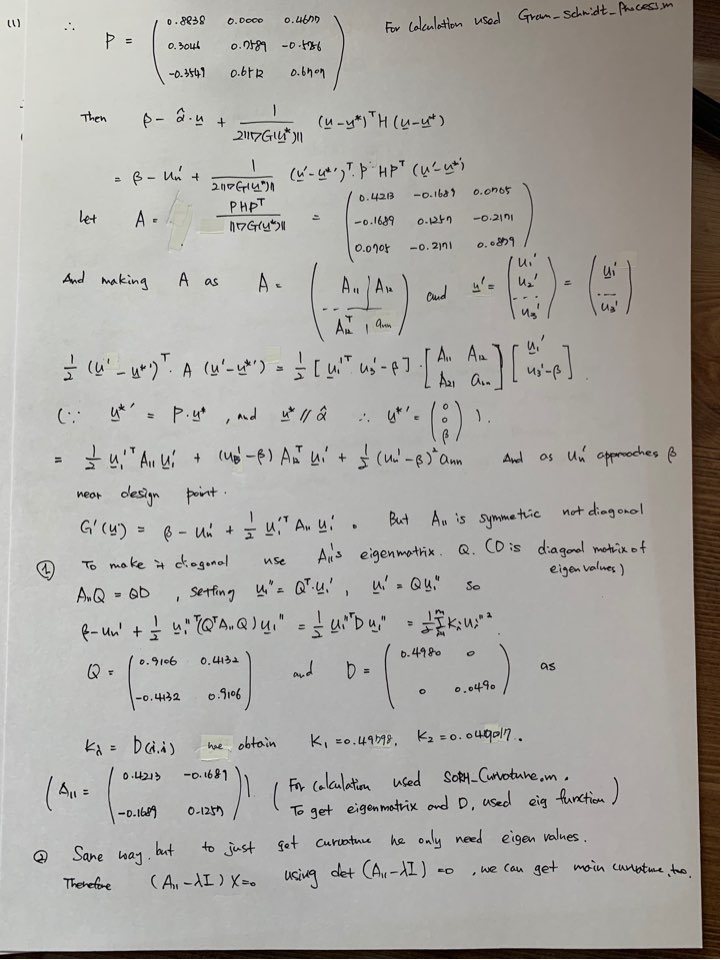 (1) ∴ P = ( 0.8838 0.0000 0.4677 For calculation used Gram_Schmidt_Process.m
0.3046 0.7589 -0.5756
-0.3549 0.6512 0.6707 )
Then β - α̂·u + 1/(2||∇G(u*)||) (u-u*)ᵀ H (u-u*)
= β - un' + 1/(2||∇G(u*)||) (u'-u*')ᵀ. P HPᵀ (u'-u*')
Let A = PHPᵀ/||∇G(u*)|| = ( 0.4213 -0.1689 0.0705
-0.1689 0.1257 -0.2171
0.0705 -0.2171 0.0879 )
And making A as A = ( A11 | A12 / A12ᵀ | ann ) and u' = ( u1' u2' ... u3' ) = ( u1' ... u3' )
1/2 (u' - u*')ᵀ. A (u'-u*') = 1/2 [ u1'ᵀ u3'-β ] . [ A11 A12 / A21 ann ] [ u1' / u3'-β ]
(∵ u*' = P.u*, and u* // α̂ ∴ u*' = ( 0 0 β ) ).
= 1/2 u1'ᵀ A11 u1' + (un'-β) A12ᵀ u1' + 1/2 (un'-β)² ann And as un' approaches β
near design point.
G'(u') = β - un' + 1/2 u1'ᵀ A11 u1'. But A11 is symmetric not diagonal
① To make it diagonal use A11's eigenmatrix. Q. (D is diagonal matrix of
eigenvalues)
A11Q = QD, setting u1'' = Qᵀ.u1', u1' = Qu1'' so
β-un' + 1/2 u1''ᵀ(QᵀA11Q)u1'' = 1/2 u1''ᵀDu1'' = 1/2 Σ Ki ui''²
Q = ( 0.9106 0.4132 and D = ( 0.4980 0 as
-0.4132 0.9106 ) 0 0.0490 )
Ki = D(i,i) we obtain K1 = 0.49798, K2 = 0.049017.
( A11 = ( 0.4213 -0.1689 ( For calculation used SORM_Curvature.m.
-0.1689 0.1257 ) ) To get eigenmatrix and D, used eig function )
② Same way. but to just get curvature he only need eigen values.
Therefore (A11 - λI) X=0 using det (A11-λI) =0, we can get main curvature, too.